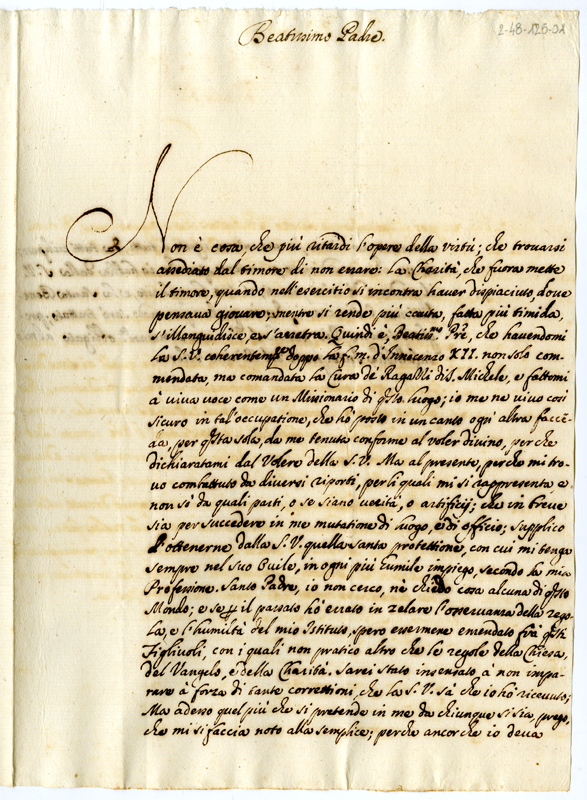 2-48-126-01
Beatissimo Padre.
Non è cosa che più ritardi l'opere della virtù; che trovarsi
assediato dal timore di non errare: La Charità, che fuora mette
il timore, quando nell'esercitio si incontra haver dispiaciuto, dove
pensava giovare; mentre si rende più cauta, fatta più timida,
s'illanguidisce, e s'arretra. Quindi è, Beatiss.mo P're, che havendomi
La S.V. coherentem.te doppo la f.m. d'Innocenzo XII. non solo com-
mendata, ma comandata la Cura de' Ragazzi di S. Michele, e fattomi
à viva voce come un Missionario di q'sto luogo; io me ne vivo così
sicuro in tal'occupatione, che hò posto in un canto ogn'altra facce-
da, per q'sta sola, da me tenuta conforme al voler divino, perche
dichiaratami dal Volere della S.V. Ma al presente, perche mi tro-
vo combattuto da diversi riporti, per li quali mi si rappresenta, e
non sò da quali parti, o se siano verità, o artificij; che in breve
sia per succedere in me mutatione di luogo, e di officio; supplico
l'ottenerne dalla S.V. quella santa protettione, con cui mi tenga
sempre nel suo Ovile, in ogni più humile impiego, secondo la mia
Professione. Santo Padre, io non cerco, nè chiedo cosa alcuna di q'sto
Mondo; e se p il passato hò errato in zelare l'osservanza della rego-
la, e l'humiltà del mio Istituto, spero essermene emendato frà q'sti
Figlivoli, con i quali non pratico altro che le regole della Chiesa,
del Vangelo, e della Charità. Sarei stato insensato, à non impa-
rare à forza di tante correttioni, che la S.V. sà che io hò ricevuto;
Ma adesso quel più che si pretende in me da chiunque si sia, prego,
che mi si faccia noto alla semplice; perche ancorche io deva